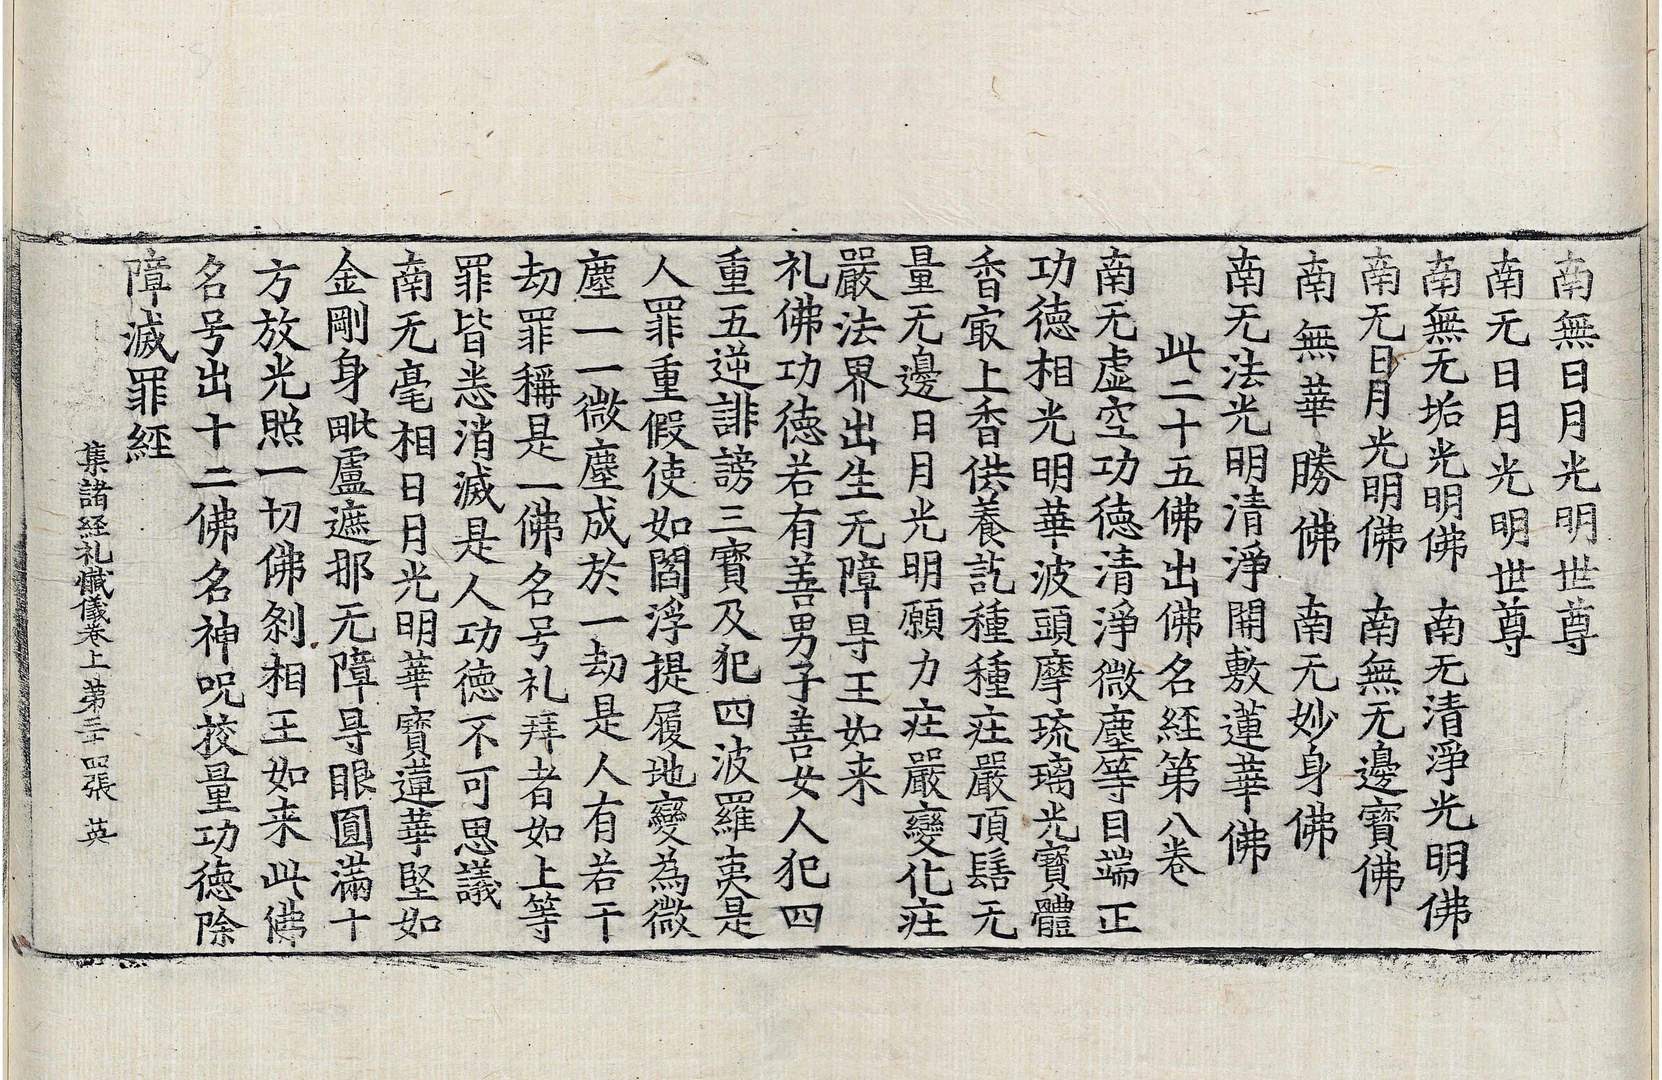 南無日月光明世尊
南无日月光明世尊
南無无垢光明佛　南无清淨光明佛
南无日月光明佛　南無无邊寶佛
南無華勝佛　南无妙身佛
南无法光明清淨開敷蓮華佛
此二十五佛出佛名經第八卷
南无虛空功德清淨微塵等目端正
功德相光明華波頭摩琉璃光寶體
香冣上香供養訖種種㽵嚴頂髻无
量无邊日月光明願力㽵嚴變化㽵
嚴法界出生无障㝵王如来
礼佛功德若有善男子善女人犯四
重五逆誹謗三寶及犯四波羅夷是
人罪重假使如閻浮提履地變為微
塵一一微塵成於一劫是人有若干
劫罪稱是一佛名号礼拜者如上等
罪皆悉消滅是人功德不可思議
南无毫相日月光明華寶蓮華堅如
金剛身毗盧遮那无障㝵眼圓滿十
方放光照一切佛剎相王如来此佛
名号出十二佛名神呪挍量功德除
障滅罪經
集諸經礼懺儀卷上第三十四張　英